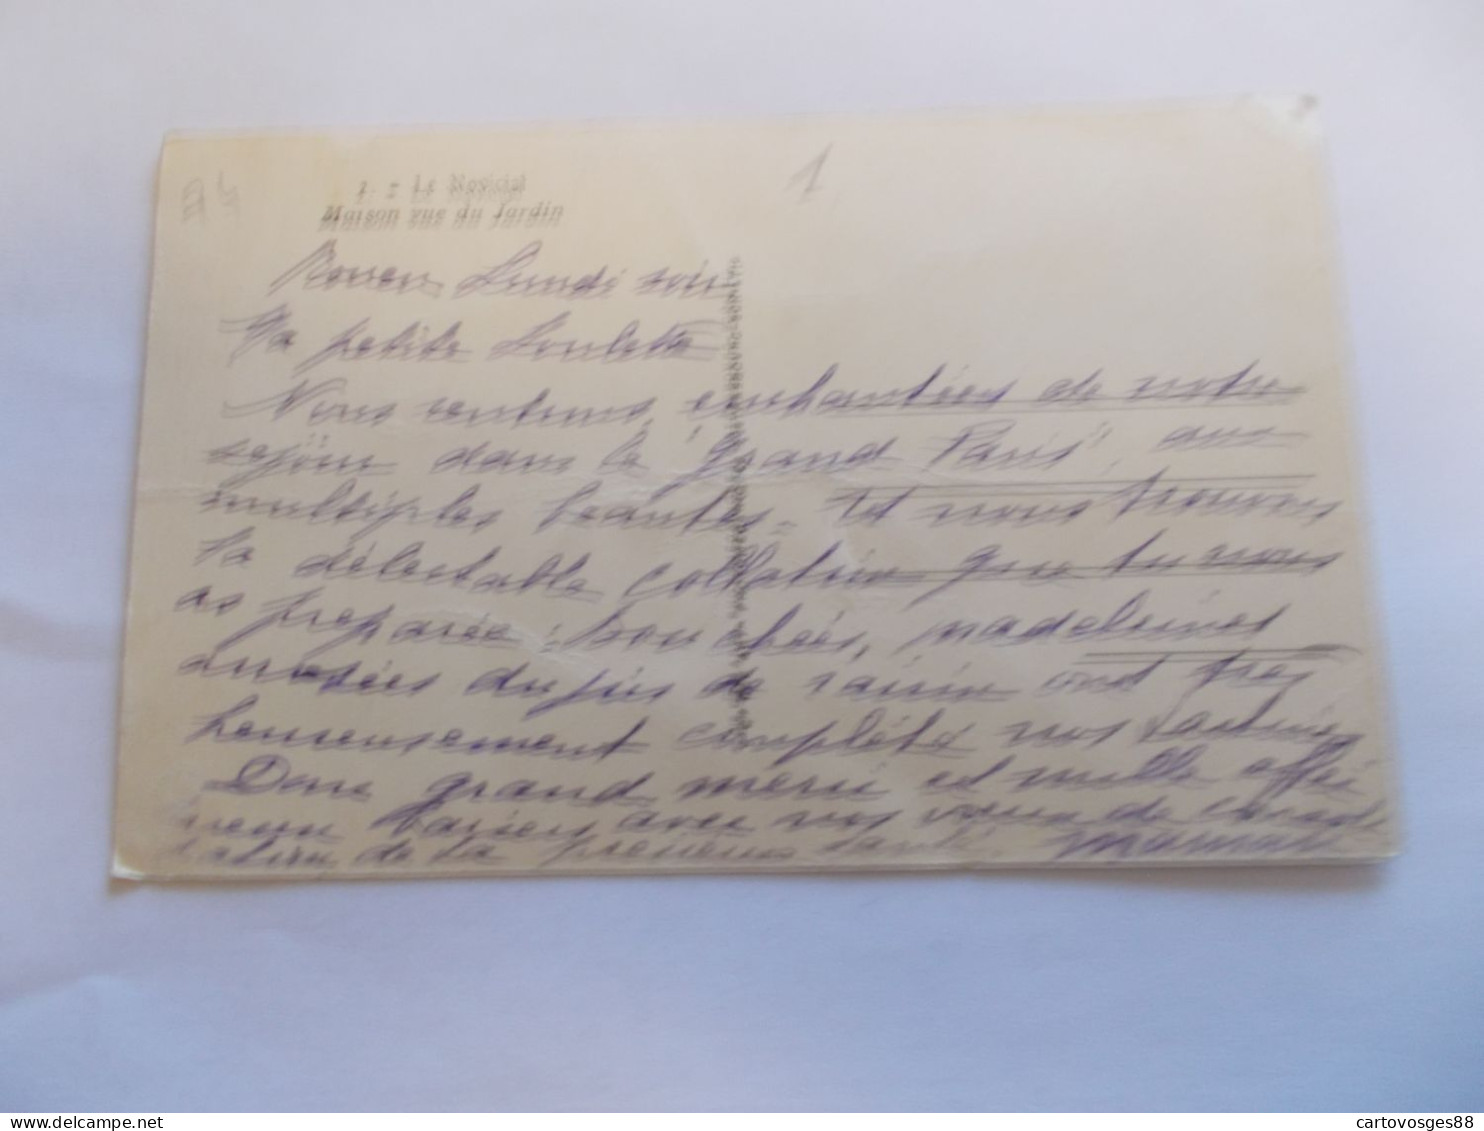 1
Le Noviciat
Maison vue du Jardin
Rouen Lundi soir
Ma petite Loulette
Nous rentrons, enchantées de notre
séjour dans le "Grand Paris", aux
multiples beautés. Et nous trouvons
la délectable collation que tu nous
as preparée : bouchées, madeleines
arrosées du jus de raisin ont très
heureusement complété nos
Donc grand merci et mille affec
baisers avec nos voeux de
de ta santé. Maman
cartovosges88